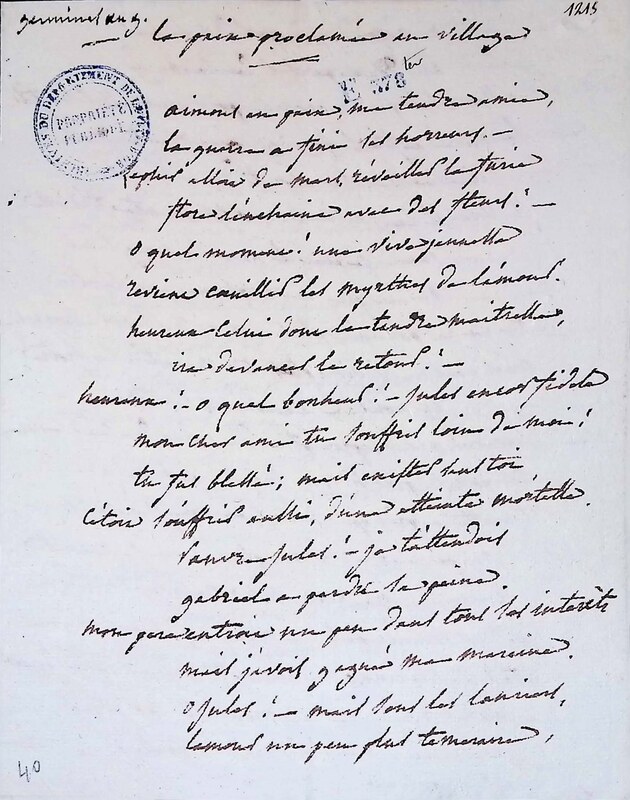 germinal an 9.
1215
la paix proclamée au village
N 378 ter
PROPRIÉTÉ PUBLIQUE
aimons en paix, ma tendre amie,
la guerre a fini ses horreurs. —
alloit de mars, réveiller la furie
flore l'enchaine avec des fleurs! —
o quel moment! une vive jeunesse
revient cueillir les myrthes de l'amour.
heureux celui dont la tendre maitresse,
ira devancer le retour! —
heureux! — o quel bonheur! — jules encor fidele
mon cher ami tu souffris loin de moi!
tu fus blessé; mais
c'étoit souffrir aussi, d'une atteinte mortelle.
pauvre jules! — je t'attendois
gabriel a perdu sa peine.
mon pere entroit un peu dans tous ses interêts
mais j'avois gagné ma maraine.
o jules! — mais sous les lauriers,
l'amour un peu plus temeraire,
40